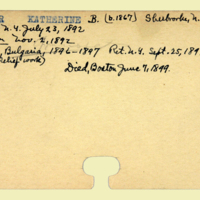 R KATHERINE B. (b.1867) Sherbrooke, N.
N.Y. July 23, 1892
Nov. 2, 1892
, Bulgaria, 1896-1897 Ret. N.Y. Sept. 25, 189
relief work)
Died, Boston June 7, 1899.